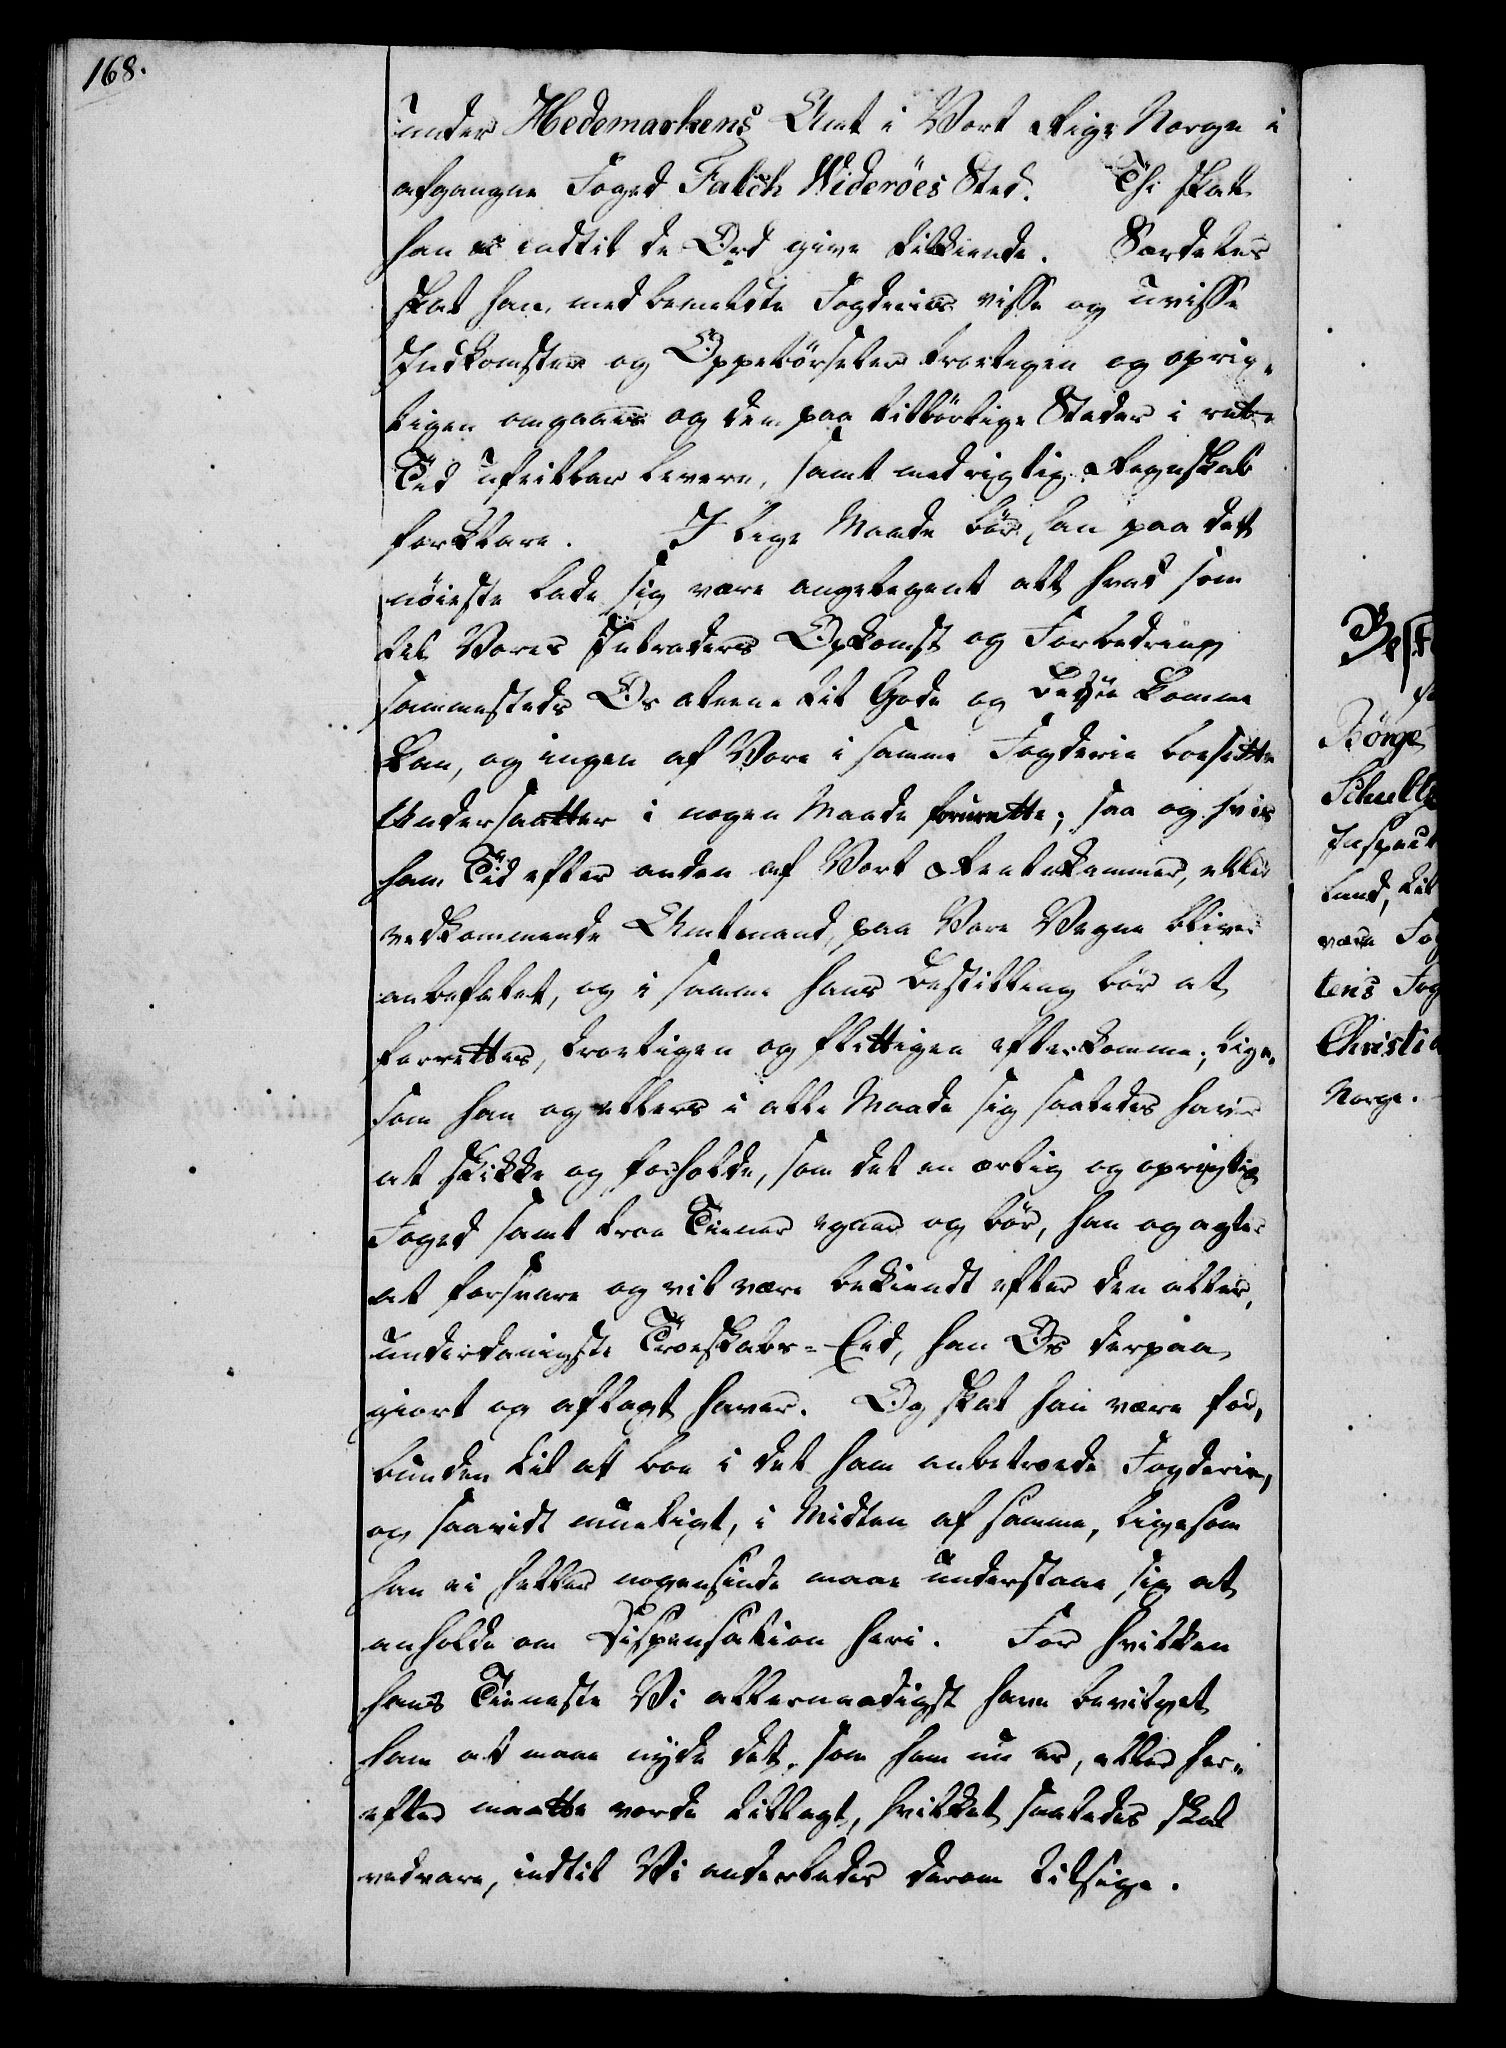 168.
under Hedemarkens Amt i Vort Rige Norge i
afgangne Foged Falch Widerøes Sted. Thi skal
han indtil de Ord give tilkiende. Særdeles
skal han med bemeldte Fogderies visse og uvisse
Indkomster og Oppebørseler troeligen og oprig-
tigen omgaaes og dem paa tilbørlige Steder i rette
Tid ufeilbar levere, samt med rigtig Regnskab
forklare. I lige Maade bør han paa det
nøieste lade sig være angelegent alt hvad som
til Vores Intraders Opkomst og Forbedring
sammesteds Os alene til Gode og Beste komme
kan, og ingen af Vore i samme Fogderie boesidde
Undersaatter i nogen Maade forurette; saa og hvis
ham Tid efter anden af Vort Rentekammer, eller
vedkommende Amtmand, paa Vore Vegne bliver
anbefalet, og i samme hans Bestilling bør at
forrettes, troeligen og flittigen efterkomme; lige-
som han og ellers i alle Maade sig saaledes haver
at skikke og forholde, som det en ærlig og oprigtig
Foged samt troe Tiener egner og bør, han og agter
at forsvare og vil være bekiendt efter den aller-
underdanigste Troeskabs-Eed, han Os derpaa
giort og aflagt haver. Og skal han være for-
bunden til at boe i det ham anbetroede Fogderie,
og saavidt mueligt, i Midten af samme, ligesom
han ei heller nogensinde maae understaae sig at
anholde om Dispensation heri. For hvilken
hans Tieneste Vi allernaadigst have bevilget
ham at maae nyde det, som ham nu er, eller her-
efter maatte vorde tillagt, hvilket saaledes skal
vedvare, indtil Vi anderledes derom tilsige.
Best
Börge
Schultz
Inspect
land, til
være Fog
tens Fog
Christia
Norge.